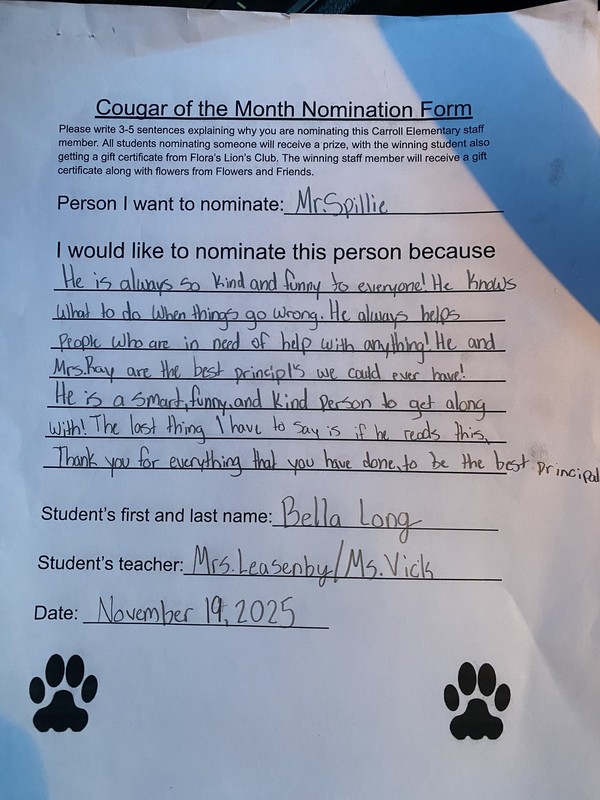 Cougar of the Month Nomination Form
Please write 3-5 sentences explaining why you are nominating this Carroll Elementary staff
member. All students nominating someone will receive a prize, with the winning student also
getting a gift certificate from Flora's Lion's Club. The winning staff member will receive a gift
certificate along with flowers from Flowers and Friends.
Person I want to nominate: Mr.Spillie
I would like to nominate this person because
He is always so kind and funny to everyone! He knows
what to do when things go wrong. He always helps
people who are in need of help with anything! He and
Mrs.Ray are the best principl's we could ever have!
He is a smart, funny, and kind person to get along
with! The last thing I have to say is if he reads this,
Thank you for everything that you have done, to be the best principal
Student's first and last name: Bella Long
Student's teacher: Mrs.Leasenby/Ms.Vick
Date: November 19, 2025